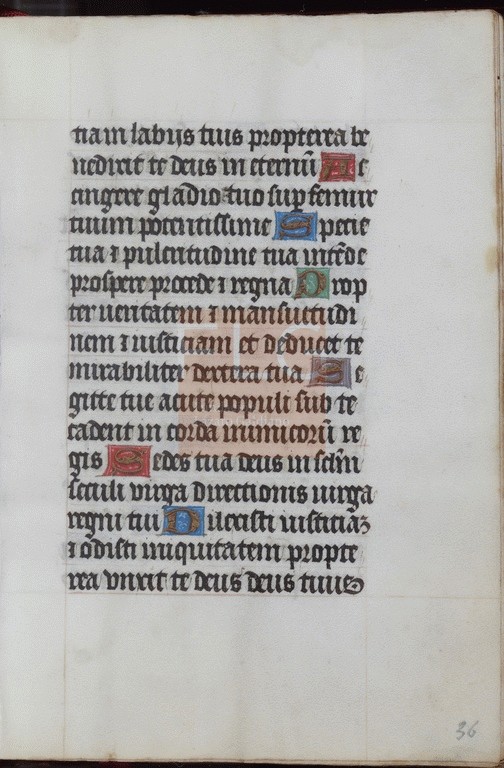 tiam labijs tuis propterea be
nedixit te deus in eternū Ac
cingere gladio tuo sup femur
tuum potentissime Specie
tua ⁊ pulcritudine tua intēde
prospere procede ⁊ regna Prop
ter ueritatem ⁊ mansuetudi
nem ⁊ iusticiam et deducet te
mirabiliter dextera tua Sa
gitte tue acute populi sub te
cadent in corda inimicorū re
gis Sedes tua deus in sclm̄
seculi virga directionis uirga
regni tui Dilexisti iusticiaꝫ
⁊ odisti iniquitatem propte
rea vnxit te deus deus tuus
36